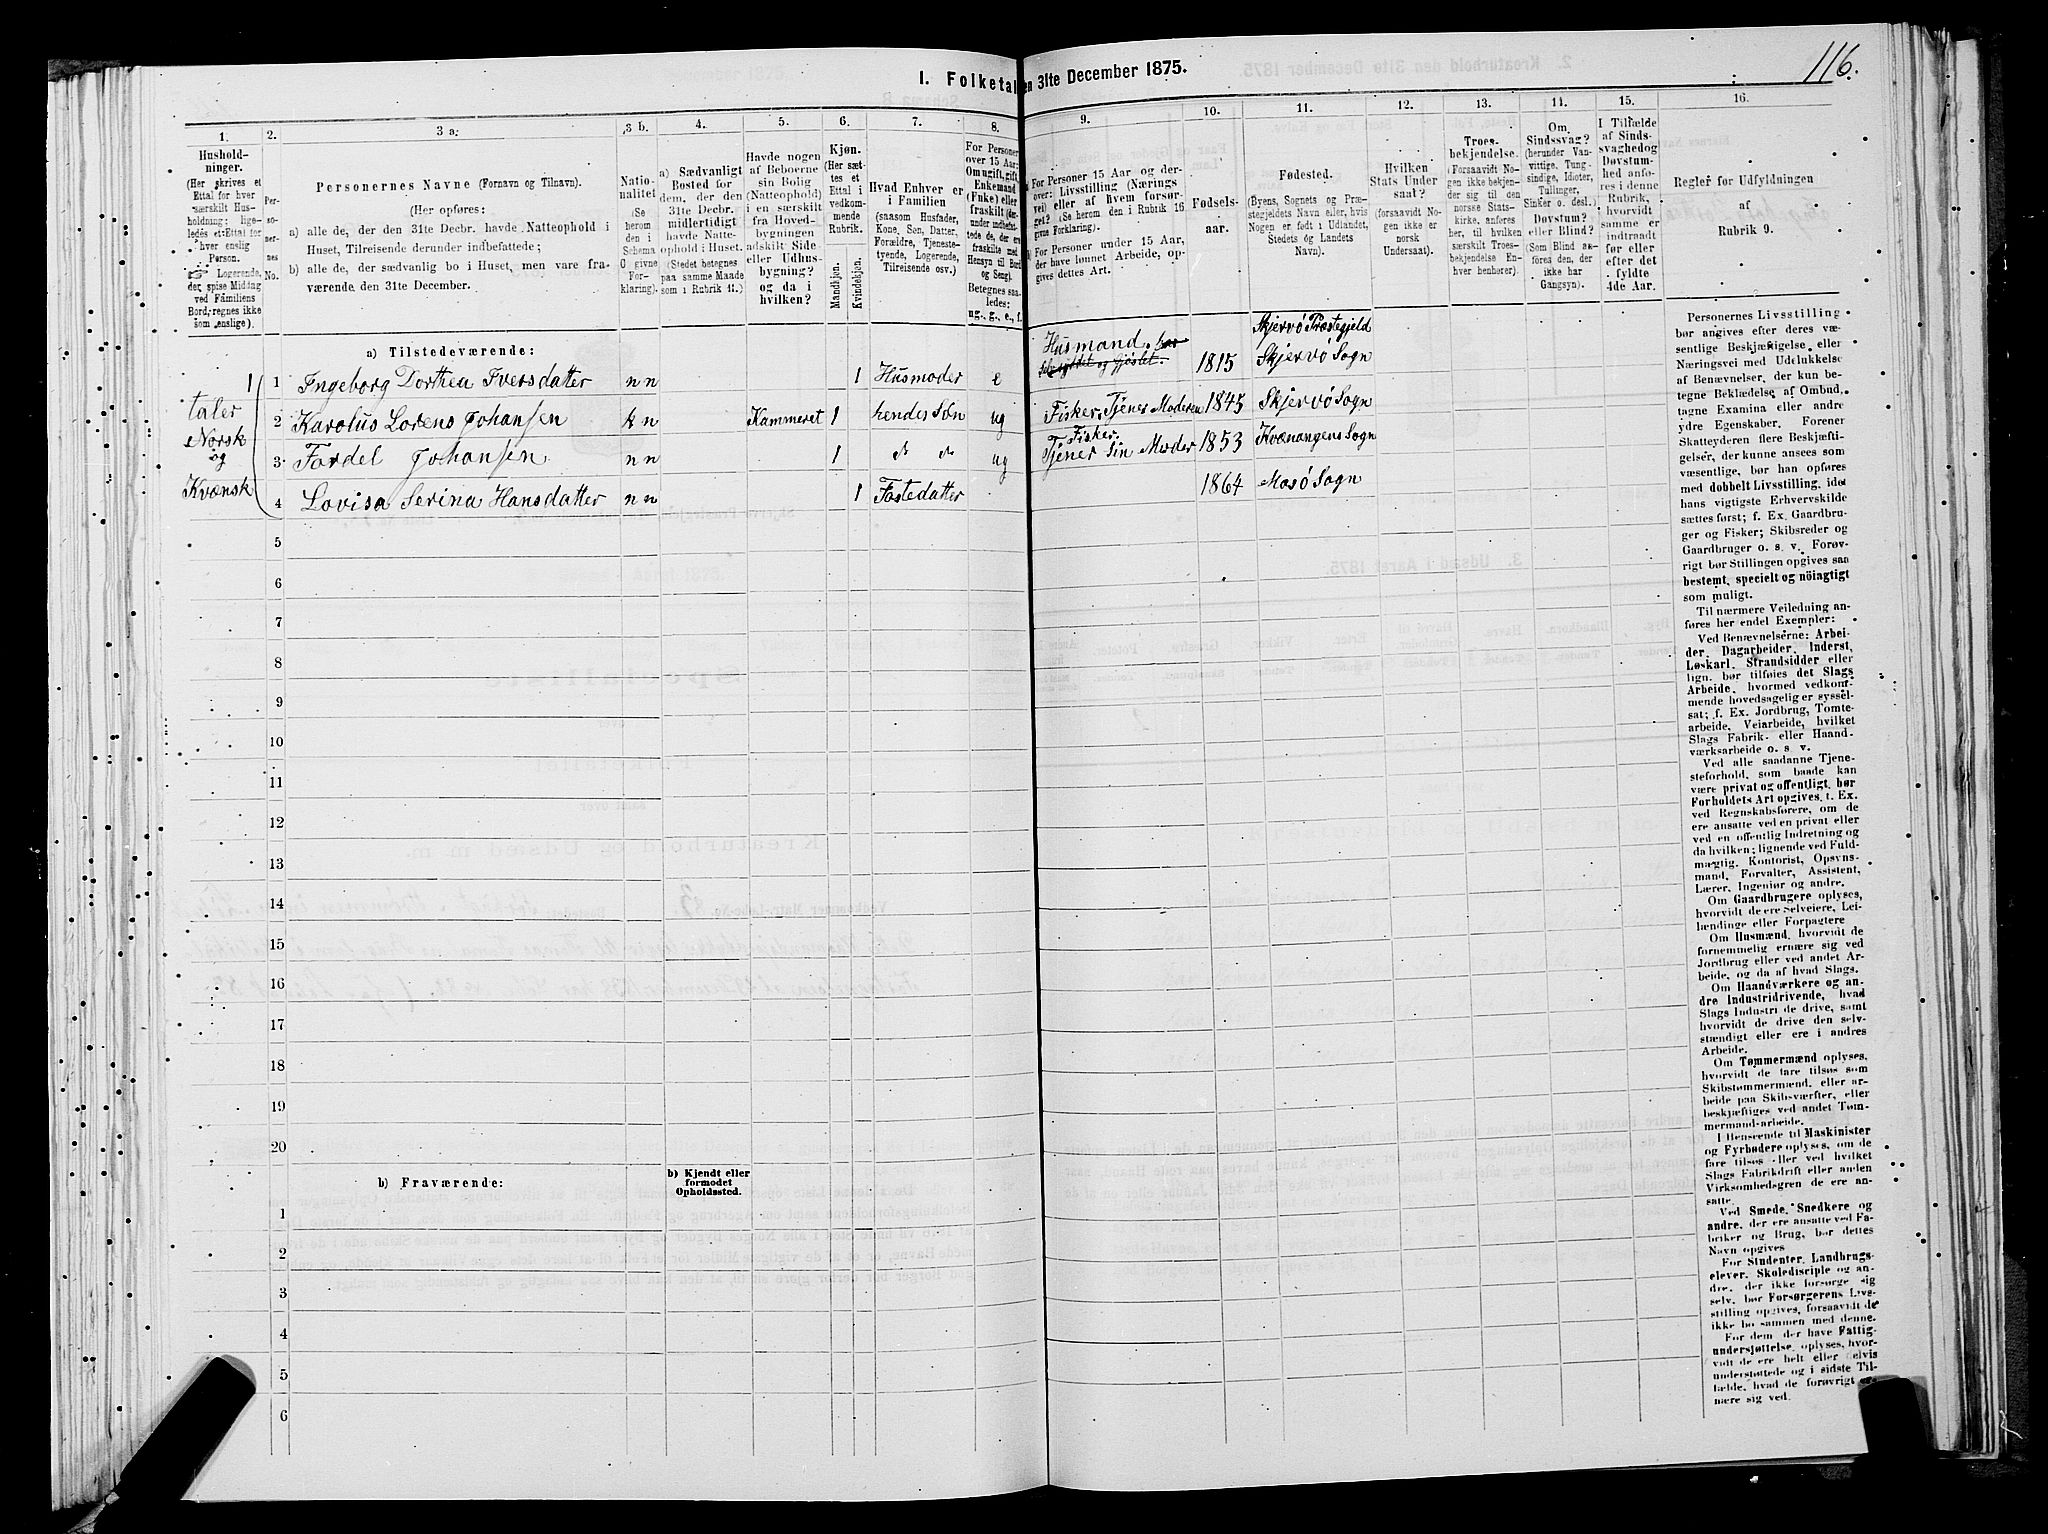 116.
I. Folketal
en 31te December 1875.
1.
2.
3 a.
3 b.
4.
5.
6.
7.
8.
9.
10.
11.
12.
13.
14.
15.
16.
Hushold-
ninger.
(Her skrives et
Ettal for hver
særskilt Hus-
holdning; lige-
ledes et Ettal for
hver enslig
Person.
Logerende,
der spise Middag
ved Familiens
Bord, regnes ikke
som enslige).
Per-
so-
ner-
nes
No.
Personernes Navne (Fornavn og Tilnavn).
(Her opføres:
a) alle de, der den 31te Decbr. havde Natteophold i
Huset, Tilreisende derunder indbefattede;
b) alle de, der sædvanlig bo i Huset, men vare fra-
værende den 31te December.
Natio-
nalitet
(Se
herom
den i
Schema
O givne
For-
klaring).
a) Sædvanligt
Bosted for
dem, der den
31te Decbr.
midlertidigt
havde Natte-
ophold i Huset.
(Stedet betegnes
paa samme Maade
som i Rubrik 11.)
Havde nogen
af Beboerne
sin Bolig
(Natteophold)
i en særskilt
fra Hoved-
bygningen
adskilt Side
eller Udhus-
bygning?
og da i
hvilken?
Kjøn.
(Her sæt-
tes et
Ettal i
vedkom-
mende
Rubrik.
Mandkjøn.
Kvindekjøn.
Hvad Enhver er
i Familien
(saasom Husfader,
Kone, Søn, Datter,
Forældre, Tjeneste-
tyende, Logerende,
Tilreisende osv.)
For Personer
over 15 Aar:
Om ugift, gift,
Enkemand
(Fuke) eller
fraskilt (der-
under indbefat-
tede de, der ere
fraskilte med
Hensyn til Bord
og Seng).
Betegnes saa-
ledes:
ug., g., e., f.
For Personer 15 Aar og der-
over: Livsstilling (Nærings-
vei) eller af hvem forsør-
get? (Se herom i Rubrik 16
givne Forklaring).
For Personer under 15 Aar,
der have lønnet Arbeide, op-
gives dettes Art.
Fødsels-
aar.
Fødested.
(Byens, Sognets og Præ-
stegjeldets Navn, eller, hvis
Nogen er født i Udlandet,
Stedets og Landets
Navn).
Hvilken
Stats Under
saat?
(forsaavidt No-
gen ikke er
norsk
Undersaat).
Troes-
bekjendelse.
(Forsaavidt No-
gen ikke bekjen-
der sig til den
norske Stats-
kirke, anføres
her, til hvilken
særskilt Troes-
bekjendelse En-
hver henhører).
Om
Sindssvag?
(herunder Van-
vittige, Tung-
sindige, Idioter,
Tullinger,
Sinker o. desl.)
Døvstum?
eller Blind?
(Som Blind an-
føres den, der
ikke har
Gangsyn).
I Tilfælde
af Sinds-
svaghed og
Døvstum-
hed anfø-
res i denne
Rubrik,
hvorvidt
samme er
indtraadt
før eller
efter det
fyldte
4de Aar.
Regler for Udfyldningen
af
Rubrik 9.
a) Tilstedeværende:
1
taler
Norsk
og
Kvænsk
1 Ingeborg Dorthea Iversdatter n n 1 Husmoder e Husmand. 1815 Skjervö Præstegjeld Skjervö Sogn
2 Karolus Lorens Johansen k n Kammeret 1 hendes Søn ug Fisker, Tjener Moderen 1845 Skjervö Sogn
3 Fardel Johansen n n 1 ug Fisker. Tjener Sin Moder 1853 Kvænangens Sogn
4 Lovisa Serina Hansdatter n n 1 Fostedatter 1864 Masö Sogn
5
6
7
8
9
10
11
12
13
14
15
16
17
18
19
20
b) Fraværende:
b) Kjendt eller
formodet
Opholdssted.
1
2
3
4
5
6
Personernes Livsstilling
bør angives efter deres væ-
sentlige Beskjæftigelse eller
Næringsvei med Udelukkelse
af Benævnelser, der kun be-
tegne Beklædelse af Ombud,
tagne Examina eller andre
ydre Egenskaber. Forener
Skatteyderen flere Beskjæfti-
gelser, der kunne ansees som
væsentlige, bør han opføres
med dobbelt Livsstilling, idet
hans vigtigste Erhvervskilde
sættes først; f. Ex. Gaardbru-
ger og Fisker; Skibsreder og
Gaardbruger o. s. v. Forøv-
rigt bør Stillingen opgives saa
bestemt, specielt og nöiagtigt
som muligt.
Til nærmere Veiledning an-
føres her endel Exempler:
Ved Benævnelserne: Arbei-
der, Dagarbeider, Inderst,
Løskarl, Strandsidder eller
lign. bør tilføies det Slags
Arbeide, hvormed vedkom-
mende hovedsagelig er syssel-
sat; f. Ex. Jordbrug, Tomte-
arbeide, Veiarbeide, hvilket
Slags Fabrik- eller Haand-
værksarbeide o. s. v.
Ved alle saadanne Tjene-
steforhold, som baade kan
være privat og offentligt, bør
Forholdets Art opgives, t. Ex.
ved Regnskabsførere, om de
ere ansatte ved en privat eller
ved en offentlig Indretning og
da hvilken; lignende ved Fuld-
mægtig, Kontorist, Opsyns-
mand, Forvalter, Assistent,
Lærer, Ingeniør og andre.
Om Gaardbrugere oplyses,
hvorvidt de ere Selveiere, Lei-
lændinge eller Forpagtere
Om Husmænd, hvorvidt de
fornemmelig ernære sig ved
Jordbrug eller ved andet Ar-
beide, og da af hvad Slags.
Om Haandværkere og an-
dre Industridrivende, hvad
Slags Industri de drive, samt
hvorvidt de drive den selv-
stændigt eller ere i andres
Arbeide.
Om Tømmermænd oplyses,
hvorvidt de fare tilsøs som
Skibstømmermænd, eller ar-
beide paa Skibsværfter, eller
beskjæftiges ved andet Tøm-
mermand-arbeide.
I Henseende til Maskinister
og Fyrbødere oplyses, om de
fare tilsøs eller ved hvilket
Slags Fabrikdrift eller anden
Virksomhedsgren de ere an-
satte.
Ved Smede, Snedkere og
andre, der ere ansatte ved Fa-
briker og Brug, bør dettes
Navn opgives
For Studenter, Landbrugs-
elever, Skoledisciple og an-
dre, der ikke forsørge sig
selv, bør Forsørgerens Livs-
stilling opgives, forsaavidt de
ikke bo sammen med denne.
For dem, der have Fattig-
understøttelse, oplyses, hvor-
vidt de ere helt eller delvis
understøttede og i sidste Til-
fælde, hvad de forøvrigt er-
nære sig ved.